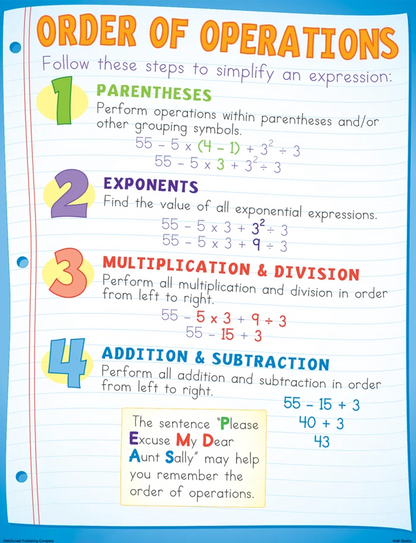 ORDER OF OPERATIONS
Follow these steps to simplify an expression:
1
PARENTHESES
Perform operations within parentheses and/or
other grouping symbols.
55 – 5 x (4 – 1) + 3² ÷ 3
55 – 5 x 3 + 3² ÷ 3
2
EXPONENTS
Find the value of all exponential expressions.
55 – 5 x 3 + 3² ÷ 3
55 – 5 x 3 + 9 ÷ 3
3
MULTIPLICATION & DIVISION
Perform all multiplication and division in order
from left to right.
55 – 5 x 3 + 9 ÷ 3
55 – 15 + 3
4
ADDITION & SUBTRACTION
Perform all addition and subtraction in order
from left to right.
55 – 15 + 3
40 + 3
43
The sentence "Please
Excuse My Dear
Aunt Sally" may help
you remember the
order of operations.